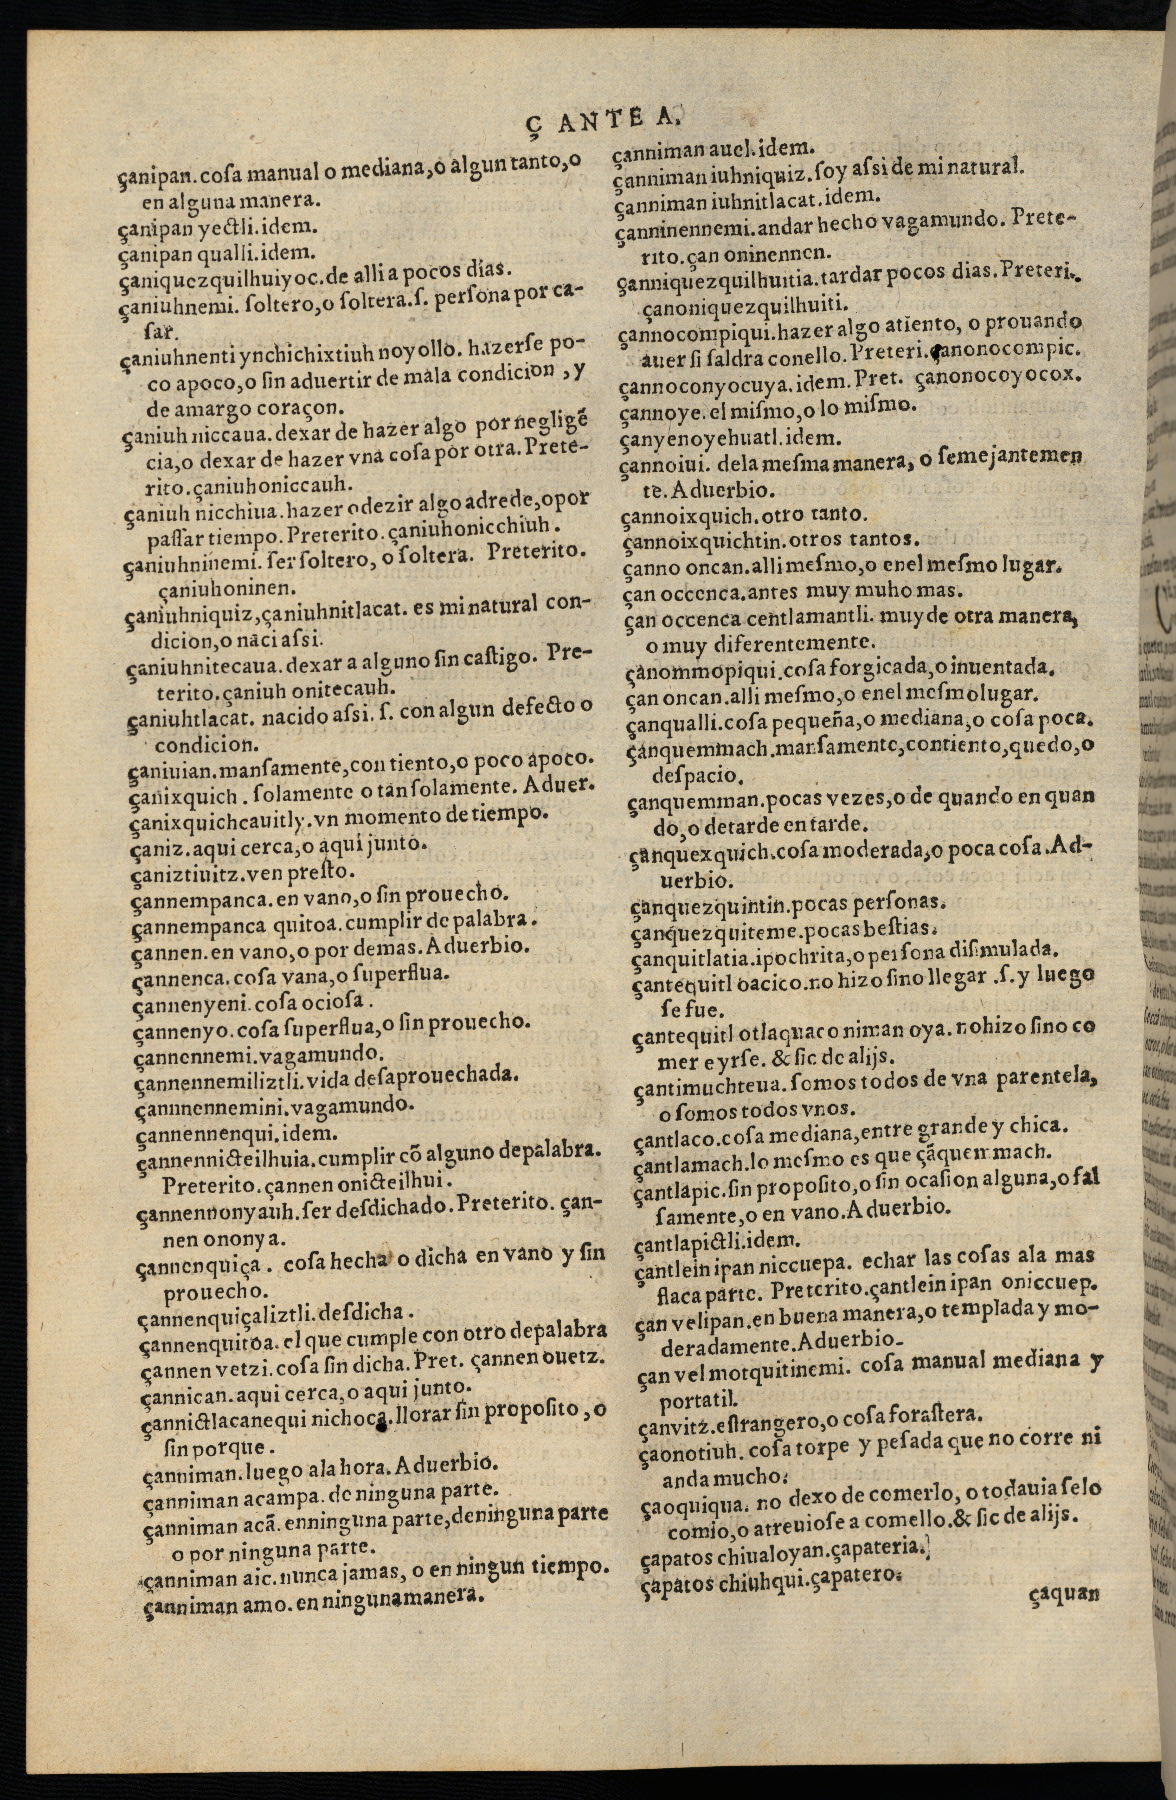 Ç ANTE A.
çanipan. coſa manual o mediana, o algun tanto, o
en alguna manera.
çanipan yectli. idem.
çanipan qualli. idem.
çaniquezquilhuiyoc. de alli a pocos dias.
çaniuhnemi. ſoltero, o ſoltera. ſ. perſona por ca-
ſar.
çaniuhnenti ynchichixtiuh noyollo. hazerſe po-
co apoco, o ſin aduertir de mala condicion, y
de amargo coraçon.
çaniuh niccaua. dexar de hazer algo por negligẽ
cia, o dexar de hazer vna coſa por otra. Prete-
rito. çaniuhoniccauh.
çaniuh nicchiua. hazer o dezir algo adrede, o por
paſſar tiempo. Preterito. çaniuhonicchiuh.
çaniuhninemi. ſer ſoltero, o ſoltera. Preterito.
çaniuhoninen.
çaniuhniquiz, çaniuhnitlacat. es mi natural con-
dicion, o naci aſsi.
çaniuhnitecaua. dexar a alguno ſin caſtigo. Pre-
terito. çaniuh onitecauh.
çaniuhtlacat. nacido aſsi. ſ. con algun defecto o
condicion.
çaniuian. manſamente, con tiento, o poco apoco.
çanixquich. ſolamente o tan ſolamente. Aduer.
çanixquichcauitly. vn momento de tiempo.
çaniz. aqui cerca, o aqui junto.
çaniztiuitz. ven preſto.
çannempanca. en vano, o ſin prouecho.
çannempanca quitoa. cumplir de palabra.
çannen. en vano, o por demas. Aduerbio.
çannenca. coſa vana, o ſuperflua.
çannenyeni. coſa ocioſa.
çannenyo. coſa ſuperflua, o ſin prouecho.
çannennemi. vagamundo.
çannennemiliztli. vida deſaprouechada.
çannnennemini. vagamundo.
çannennenqui. idem.
çannennicteilhuia. cumplir cõ alguno depalabra.
Preterito. çannen onicteilhui.
çannennonyauh. ſer deſdichado. Preterito. çan-
nen ononya.
çannenquiça. coſa hecha o dicha en vano y ſin
prouecho.
çannenquiçaliztli. deſdicha.
çannenquitoa. el que cumple con otro depalabra
çannen vetzi. coſa ſin dicha. Pret. çannen ouetz.
çannican. aqui cerca, o aqui junto.
çannictlacanequi nichoca. llorar ſin propoſito, o
ſin porque.
çanniman. luego ala hora. Aduerbio.
çanniman acampa. de ninguna parte.
çanniman acã. enninguna parte, deninguna parte
o por ninguna parte.
çanniman aic. nunca jamas, o en ningun tiempo.
çanniman amo. en ningunamanera.
çanniman auel. idem.
çanniman iuhniquiz. ſoy aſsi de mi natural.
çanniman iuhnitlacat. idem.
çanninennemi. andar hecho vagamundo. Prete-
rito. çan oninennen.
çanniquezquilhuitia. tardar pocos dias. Preteri.
çanoniquezquilhuiti.
çannocompiqui. hazer algo atiento, o prouando
auer ſi ſaldra conello. Preteri. çanonocompic.
çannoconyocuya. idem. Pret. çanonocoyocox.
çannoye. el miſmo, o lo miſmo.
çanyenoyehuatl. idem.
çannoiui. dela meſma manera, o ſemejantemen
te. Aduerbio.
çannoixquich. otro tanto.
çannoixquichtin. otros tantos.
çanno oncan. alli meſmo, o enel meſmo lugar.
çan occenca. antes muy muho mas.
çan occenca centlamantli. muy de otra manera,
o muy diferentemente.
çanommopiqui. coſa forgicada, o inuentada.
çan oncan. alli meſmo, o enel meſmolugar.
çanqualli. coſa pequeña, o mediana, o coſa poca.
çanquemmach. manſamente, contiento, quedo, o
deſpacio.
çanquemman. pocas vezes, o de quando en quan
do, o detarde en tarde.
çanquexquich. coſa moderada, o poca coſa. Ad-
uerbio.
çanquezquintin. pocas perſonas.
çanquezquiteme. pocas beſtias.
çanquitlatia. ipochrita, o perſona diſimulada.
çantequitl oacico. no hizo ſino llegar. ſ. y luego
ſe fue.
çantequitl otlaquaco niman oya. nohizo ſino co
mer e yrſe. & ſic de alijs.
çantimuchteua. ſomos todos de vna parentela,
o ſomos todos vnos.
çantlaco. coſa mediana, entre grande y chica.
çantlamach. lo meſmo es que çãquemmach.
çantlapic. ſin propoſito, o ſin ocaſion alguna, o fal
ſamente, o en vano. Aduerbio.
çantlapictli. idem.
çantlein ipan niccuepa. echar las coſas ala mas
flaca parte. Preterito. çantlein ipan oniccuep.
çan velipan. en buena manera, o templada y mo-
deradamente. Aduerbio.
çan vel motquitinemi. coſa manual mediana y
portatil.
çanvitz. eſtrangero, o coſa foraſtera.
çaonotiuh. coſa torpe y peſada que no corre ni
anda mucho.
çaoquiqua. no dexo de comerlo, o todauia ſelo
comio, o atreuioſe a comello. & ſic de alijs.
çapatos chiualoyan. çapateria.
çapatos chiuhqui. çapatero.
çaquan